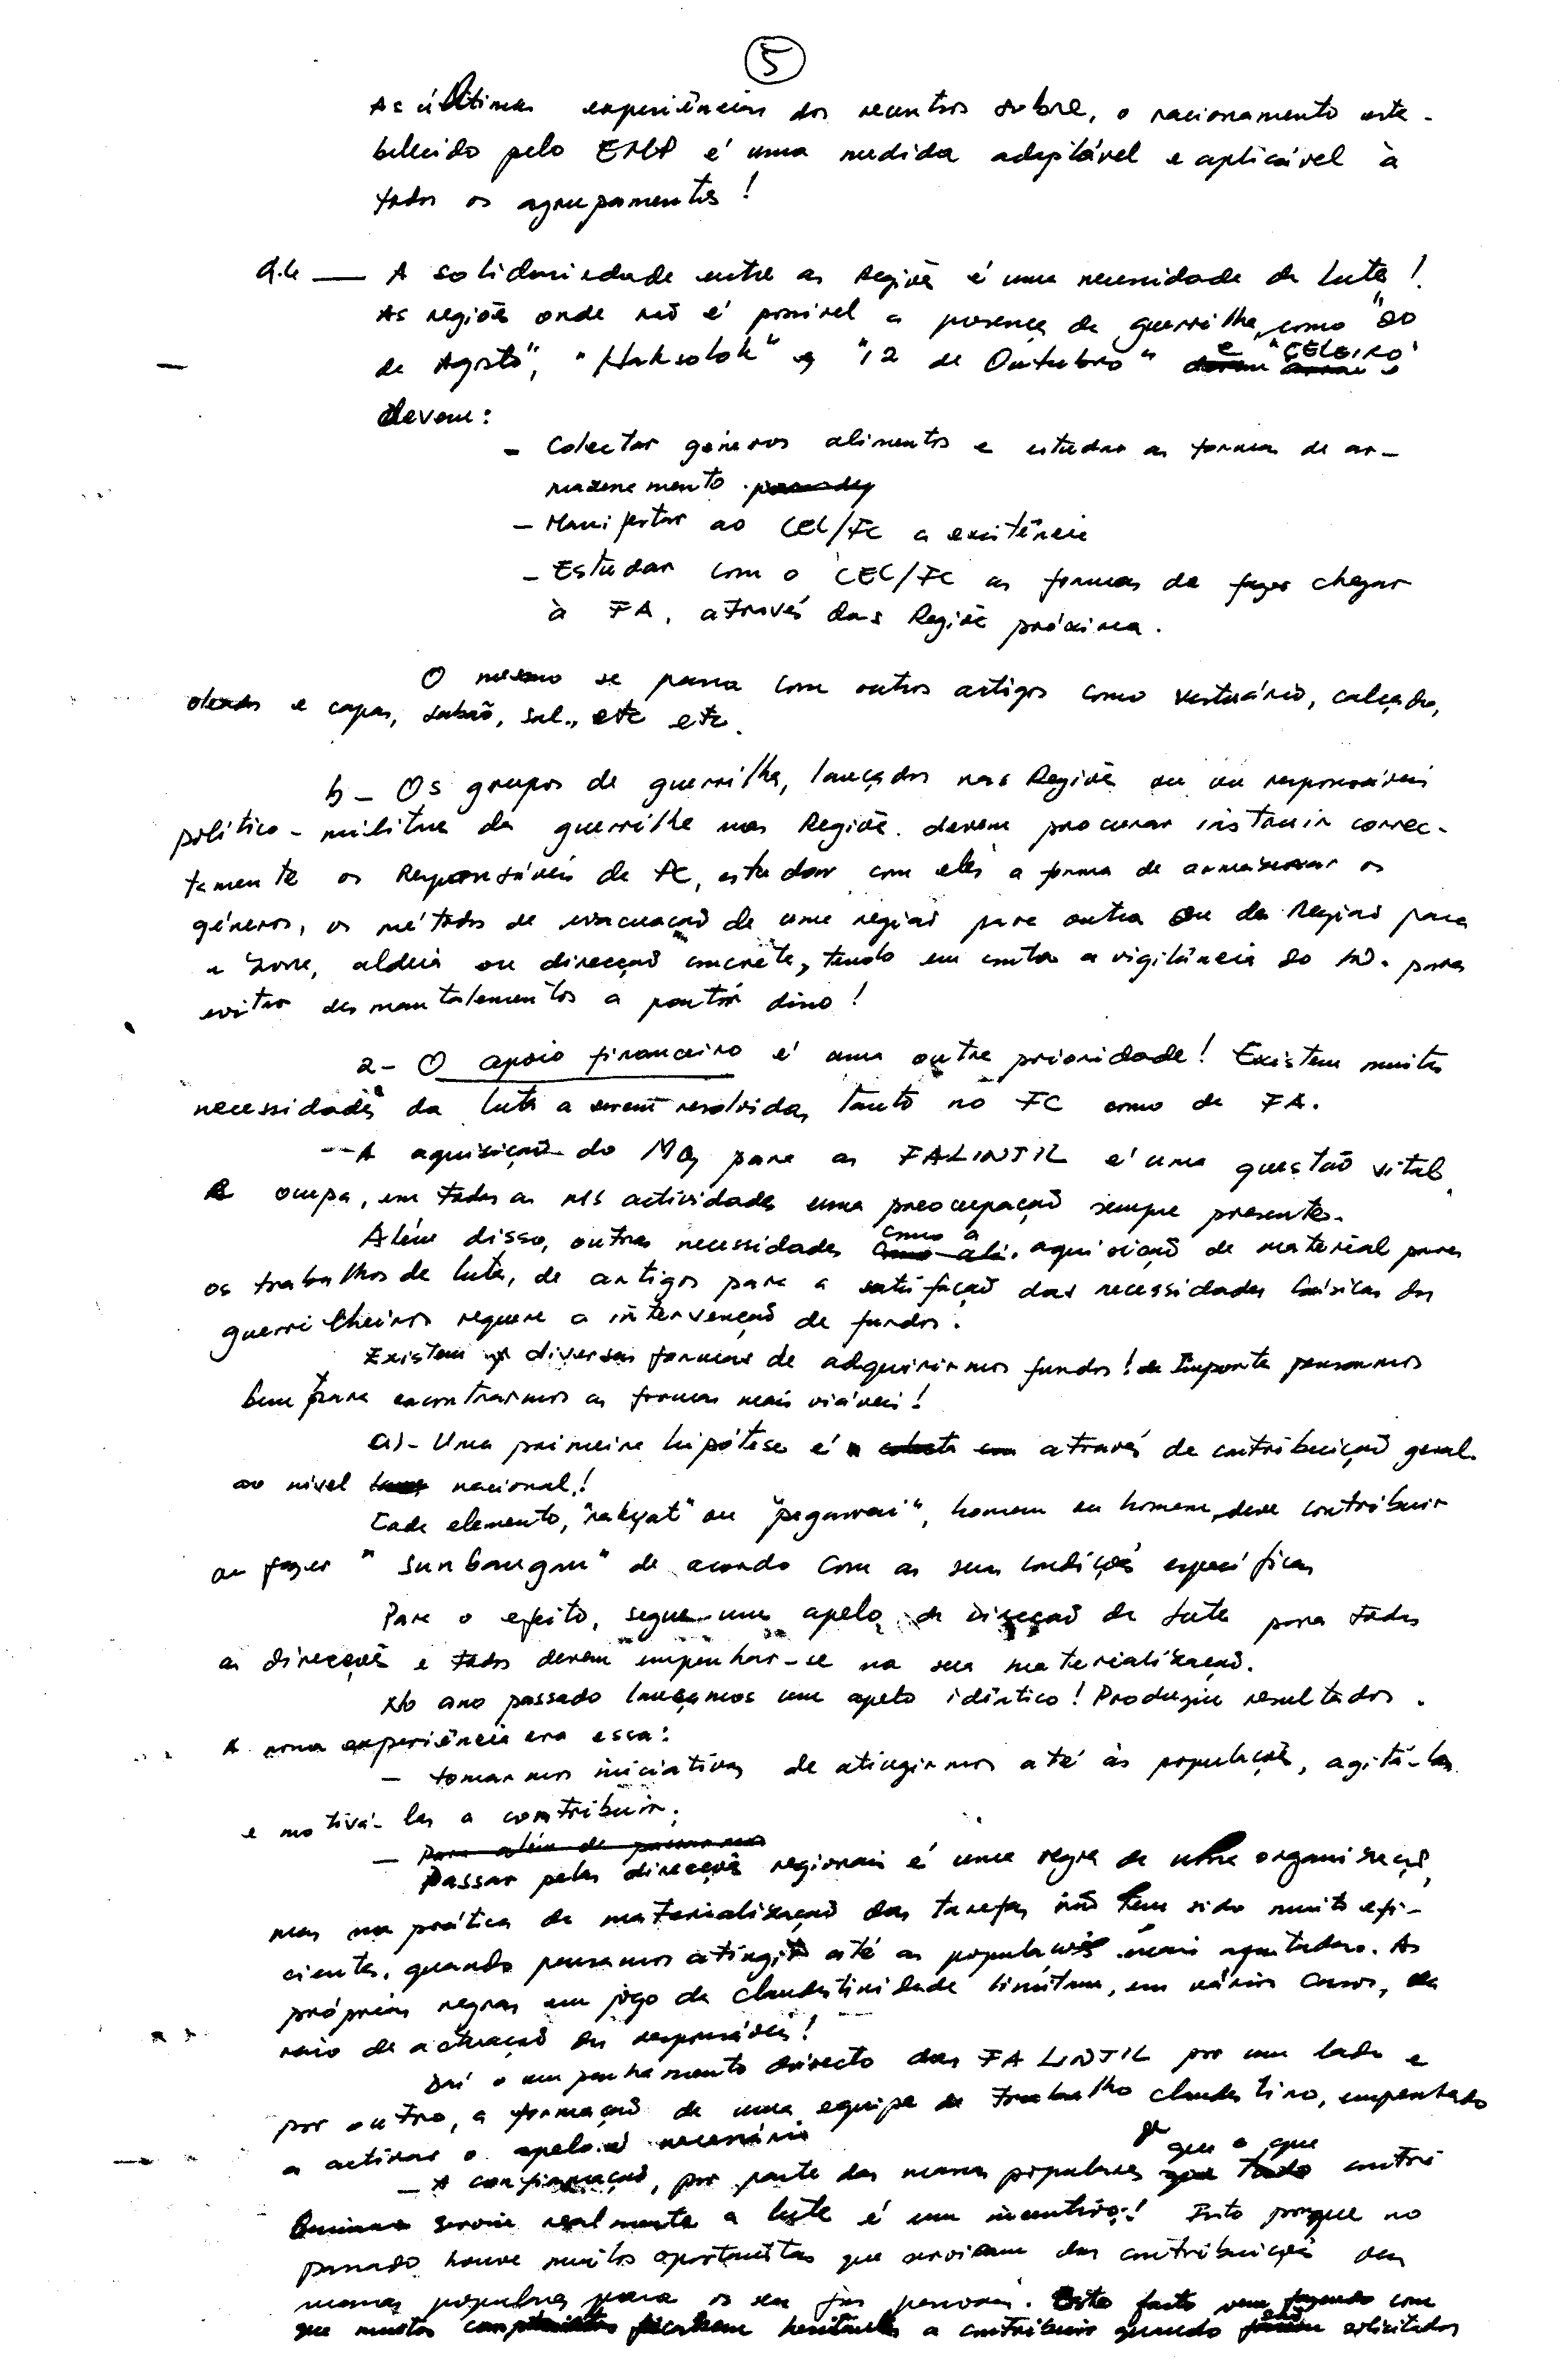 5
As últimas experiências dos recontros sobre, o racionamento esta-
belecido pelo EMP é uma medida adaptável e aplicável à
todos os agrupamentos!
A solidariedade entre as Regiões é uma necessidade da luta!
As regiões onde não é possível a presença da guerrilha, como "20
de Agosto", "Haksolok" e "12 de Outubro" e "CELEIRO"
devem:
- Colectar géneros alimentos e estudar as formas de ar-
mazenamento.
- Manifestar ao CEL/FC a existência
- Estudar com o CEC/FC as formas de fazer chegar
à FA, através das Regiões próxima.
O mesmo se passa com outros artigos como vestuário, calçado,
oleados e capas, sabão, sal., etc etc.
b- Os grupos de guerrilha, lançados nas Regiões ou os responsáveis
político-militar da guerrilha nas Regiões devem procurar instruir correc-
tamente os Responsáveis da FC, estudar com eles a forma de armazenar os
géneros, os métodos de evacuação de uma região para outra ou da Região para
a Zona, aldeia ou direcção concreta, tendo em conta a vigilância do In. para
evitar desmantelamentos a partir disso!
2- O apoio financeiro é uma outra prioridade! Existem muitas
necessidades da luta a serem resolvidas, tanto no FC como de FA.
- A aquisição do MQ para as FALINTIL é uma questão vital
e ocupa, em todas as nss actividades uma preocupação sempre presente.
Além disso, outras necessidades como a aquisição de material para
os trabalhos de luta, de artigos para a satisfação das necessidades básicas dos
guerrilheiros requere a intervenção de fundos.
Existem diversas formas de adquirirmos fundos! Importa pensarmos
bem para encontrarmos as formas mais viáveis!
a)- Uma primeira hipótese é através de contribuição geral
ao nível nacional!
Cada elemento, "rakyat" ou "pegawai", homem ou homem, deve contribuir
ou fazer "sunbangan" de acordo com as suas condições específicas
Para o efeito, segue um apelo da Direcção da Luta para todas
as direcções e todos devem empenhar-se na sua materialização.
No ano passado lançamos um apelo idêntico! Produziu resultados.
A nossa experiência era essa:
- tomarmos iniciativas de atingirmos até às populações, agitá-las
e motivá-las a contribuir;
- Passar pelas direcções regionais é uma regra de uma organização,
mas na prática de materialização das tarefas não tem sido muito efi-
cientes, quando pensamos atingir até as populações mais afastadas. As
próprias regras em jogo da clandestinidade limitam, em vários casos, o
raio de actuação dos responsáveis!
Daí o empenhamento directo das FALINTIL por um lado e
por outro, a formação de uma equipe de trabalho clandestino, empenhado
a activar o apelo é necessário
- A confirmação, por parte das massas populares de que o que contri
buiram servir realmente a luta é um incentivo! Isto porque no
passado houve muitos oportunistas que serviam das contribuições das
massas populares para os seus fins pessoais. Este facto vem fazendo com
que muitos ficassem hesitantes a contribuir quando são solicitados